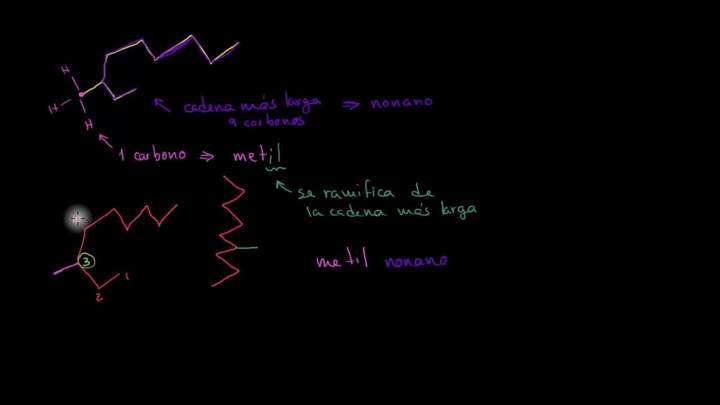 H
H
H
cadena más larga ⇒ nonano
9 carbonos
1 carbono ⇒ metil
se ramifica de
la cadena más larga
3
1
2
metil nonano